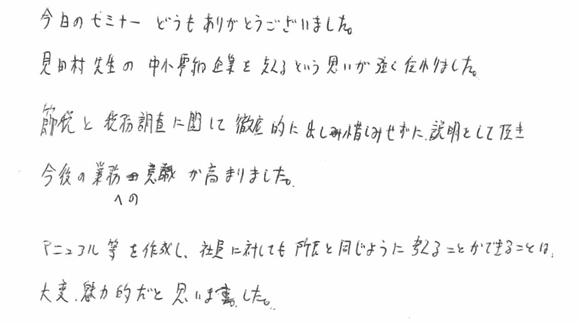 今日のセミナー どうもありがとうございました。
見田村先生の 中小零細企業を支えるという思いが強く伝わりました。
節税と税務調査に関して徹底的に出し惜しみせずに、説明をして頂き
今後の業務への意識が高まりました。
マニュアル等を作成し、社員に対しても所長と同じように考えることができることは、
大変、魅力的だと思いました。